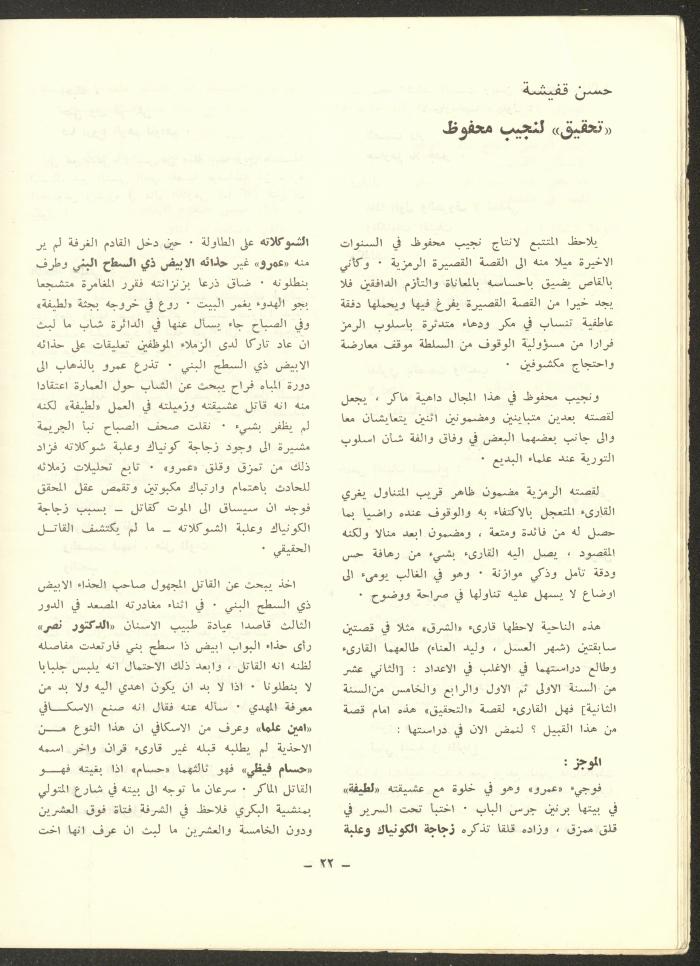 حسن قفيشة
«تحقيق» لنجيب محفوظ
يلاحظ المتتبع لانتاج نجيب محفوظ في السنوات
الاخيرة ميلا منه الى القصة القصيرة الرمزية ٠ وكأني
بالقاص يضيق باحساسه بالمعاناة والتأزم الدافقين فلا
يجد خيرا من القصة القصيرة يفرغ فيها ويحملها دفقة
عاطفية تنساب في مكر ودهاء متدثرة بأسلوب الرمز
فرارا من مسؤولية الوقوف من السلطة موقف معارضة
واحتجاج مكشوفين ٠
ونجيب محفوظ في هذا المجال داهية ماكر ، يجعل
لقصته بعدين متباينين ومضمونين اثنين يتعايشان معا
والى جانب بعضهما البعض في وفاق والفة شأن اسلوب
التورية عند علماء البديع ٠
لقصته الرمزية مضمون ظاهر قريب المتناول يغري
القارىء المتعجل بالاكتفاء به والوقوف عنده راضيا بما
حصل له من فائدة ومتعة ، ومضمون ابعد منالا ولكنه
المقصود ، يصل اليه القارىء بشيء من رهافة حس
ودقة تأمل وذكي موازنة ٠ وهو في الغالب يومىء الى
اوضاع لا يسهل عليه تناولها في صراحة ووضوح ٠
هذه الناحية لاحظها قارىء «الشرق» مثلا في قصتين
سابقتين (شهر العسل ، وليد العناء) طالعهما القارىء
وطالع دراستهما في الاغلب في الاعداد : [الثاني عشر
من السنة الاولى ثم الاول والرابع والخامس من‌السنة
الثانية] فهل القارىء لقصة «التحقيق» هذه امام قصة
من هذا القبيل ؟ لنمض الان في دراستها :
الموجز :
فوجىء «عمرو» وهو في خلوة مع عشيقته «لطيفة»
في بيتها برنين جرس الباب ٠ اختبأ تحت السرير في
قلق ممزق ، وزاده قلقا تذكره زجاجة الكونياك وعلبة
الشوكلاته على الطاولة ٠ حين دخل القادم الغرفة لم ير
منه «عمرو» غير حذائه الابيض ذي السطح البني وطرف
بنطلونه ٠ ضاق ذرعا بزنزانته فقرر المغامرة متشجعا
بجو الهدوء يغمر البيت ٠ روع في خروجه بجثة «لطيفة»
وفي الصباح جاء يسأل عنها في الدائرة شاب ما لبث
ان عاد تاركا لدى الزملاء الموظفين تعليقات على حذائه
الابيض ذي السطح البني ٠ تذرع عمرو بالذهاب الى
دورة المياه فراح يبحث عن الشاب حول العمارة اعتقادا
منه انه قاتل عشيقته وزميلته في العمل «لطيفة» لكنه
لم يظفر بشيء ٠ نقلت صحف الصباح نبأ الجريمة
مشيرة الى وجود زجاجة كونياك وعلبة شوكلاته فزاد
ذلك من تمزق وقلق «عمرو» ٠ تابع تحليلات زملائه
للحادث باهتمام وارتباك مكبوتين وتقمص عقل المحقق
فوجد ان سيساق الى الموت كقاتل ــ بسبب زجاجة
الكونياك وعلبة الشوكلاته ــ ما لم يكتشف القاتل
الحقيقي ٠
اخذ يبحث عن القاتل المجهول صاحب الحذاء الابيض
ذي السطح البني ٠ في اثناء مغادرته المصعد في الدور
الثالث قاصدا عيادة طبيب الاسنان «الدكتور نصر»
رأى حذاء البواب ابيض ذا سطح بني فارتعدت مفاصله
لظنه انه القاتل ، وابعد ذلك الاحتمال انه يلبس جلبابا
لا بنطلونا ٠ اذا لا بد ان يكون اهدي اليه ولا بد من
معرفة المهدي ٠ سأله عنه فقال انه صنع الاسكافي
«امين علما» وعرف من الاسكافي ان هذا النوع من
الاحذية لم يطلبه قبله غير قارىء قران واخر اسمه
«حسام فيظي» فهو ثالثهما «حسام» اذا بغيته فهو
القاتل الماكر ٠ سرعان ما توجه الى بيته في شارع المتولي
بمنشية البكري فلاحظ في الشرفة فتاة فوق العشرين
ودون الخامسة والعشرين ما لبث ان عرف انها اخت
– ٢٢ –